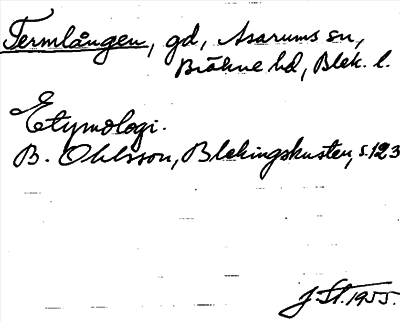 Termlången, gd, Asarums sn,
Bräkne hd, Blek. l.
Etymologi.
B. Ohlsson, Blekingskusten, s. 123
J. St. 1955.